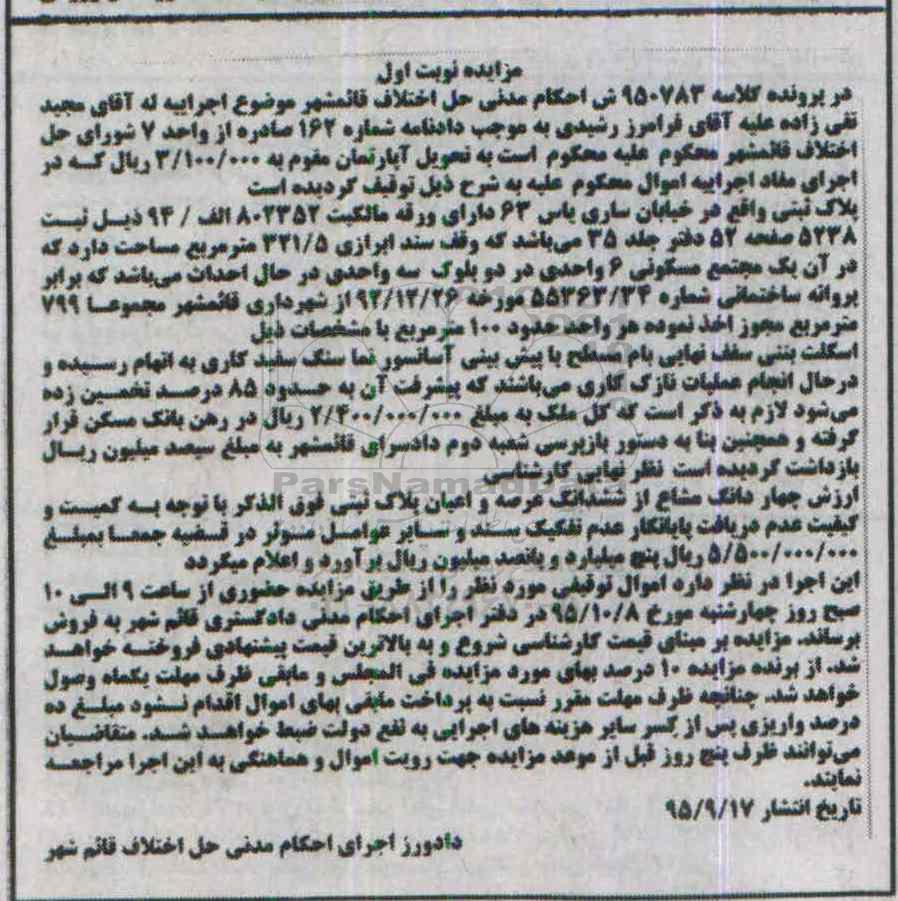 مزایده نوبت اول
در پرونده کلاسه ۹۵۰۷۸۳ ش احکام مدنی حل اختلاف قائمشهر موضوع اجراییه له آقای مجید
تقی زاده علیه آقای فرامرز رشیدی به موجب دادنامه شماره ۱۶۲ صادره از واحد ۷ شورای حل
اختلاف قائمشهر محکوم علیه محکوم است به تحویل آپارتمان مقوم به ۳/۱۰۰/۰۰۰ ریال کـه در
اجرای مفاد اجراییه اموال محکوم علیه به شرح ذیل توقیف گردیده است
پلاک ثبتی واقع در خیابان ساری یاس ۶۳ دارای ورقه مالکیت ۸۰۲۳۵۲ الف / ۹۴ ذیـل ثبـت
۵۲۳۸ صفحه ۵۲ دفتر جلد ۳۵ می‌باشد که وفف سند ابرازی ۳۲۱/۵ مترمربع مساحت دارد که
در آن یک مجتمع مسکونی ۶ واحدی در دو بلوک سه واحدی در حال احداث می‌باشد که برابر
پروانه ساختمانی شماره ۵۵۳۶۳/۳۴ مورخه ۹۲/۱۲/۲۶ از شهرداری قائمشهر مجموعـا ۷۹۹
مترمربع مجوز اخذ نموده هر واحد حدود ۱۰۰ مترمربع با مشخصات ذیل
اسکلت بتنی سقف نهایی بام مسطح با پیش بینی آسانسور نما سنگ سفید کاری به اتهام رسـیده و
درحال انجام عملیات نازک کاری می‌باشند که پیشرفت آن به حـدود ۸۵ درصـد تخمـین زده
می‌شود لازم به ذکر است که کل ملک به مبلغ ۲/۴۰۰/۰۰۰/۰۰۰ ریال در رهن بانک مسکن قرار
گرفته و همچنین بنا به دستور بازپرسی شعبه دوم دادسرای قائمشهر به مبلغ سیصد میلیون ریـال
بازداشت گردیده است نظر نهایی کارشناسی
ارزش چهار دانگ مشاع از ششدانگ عرصه و اعیان پلاک ثبتی فوق الذکر با توجه بـه کمیـت و
کیفیت عدم دریافت پایانکار عدم تفکیک سـند و سـایر عوامـل مـوثر در قـضیه جمعـا بمبلـغ
۵/۵۰۰/۰۰۰/۰۰۰ ریال پنج میلیارد و پانصد میلیون ریال برآورد و اعلام میگردد
این اجرا در نظر دارد اموال توقیفی مورد نظر را از طریق مزایده حضوری از ساعت ۹ الـی ۱۰
صبح روز چهارشنبه مورخ ۹۵/۱۰/۸ در دفتر اجرای احکام مدنی دادگستری قائم شهر به فروش
برساند. مزایده بر مبنای قیمت کارشناسی شروع و به بالاترین قیمت پیشنهادی فروختـه خواهـد
شد. از برنده مزایده ۱۰ درصد بهای مورد مزایده فی المجلس و مابقی ظرف مهلت یکماه وصول
خواهد شد. چنانچه ظرف مهلت مقرر نسبت به پرداخت مابقی بهای اموال اقدام نـشود مبلـغ ده
درصد واریزی پس از کسر سایر هزینه های اجرایی به نفع دولت ضبط خواهـد شـد. متقاضـیان
می‌توانند ظرف پنج روز قبل از موعد مزایده جهت رویت اموال و هماهنگی به این اجرا مراجعـه
نمایند.
تاریخ انتشار ۹۵/۹/۱۷
دادورز اجرای احکام مدنی حل اختلاف قائم شهر
ParsNamadData